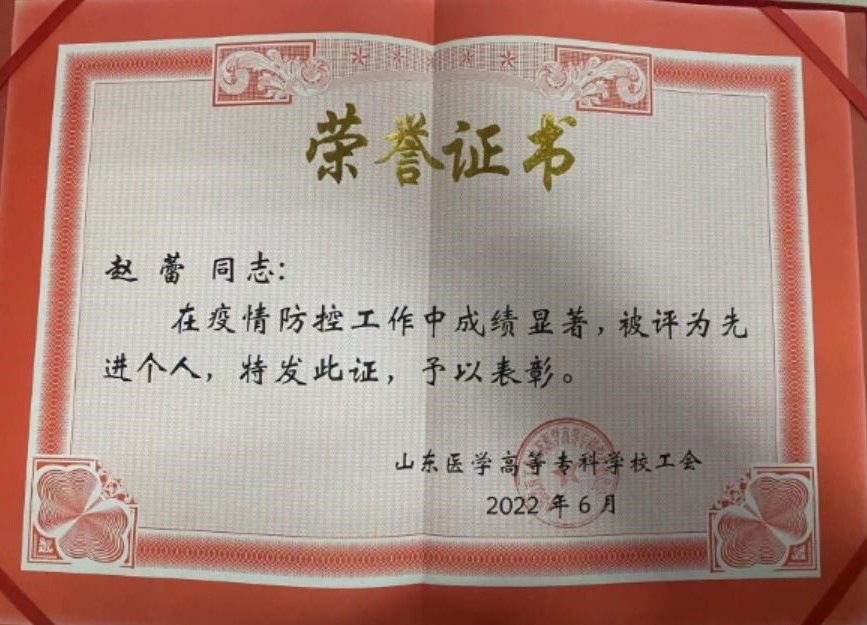 荣誉证书
赵 蕾 同志：
在疫情防控工作中成绩显著，被评为先
进个人，特发此证，予以表彰。
山东医学高等专科学校工会
2022年6月